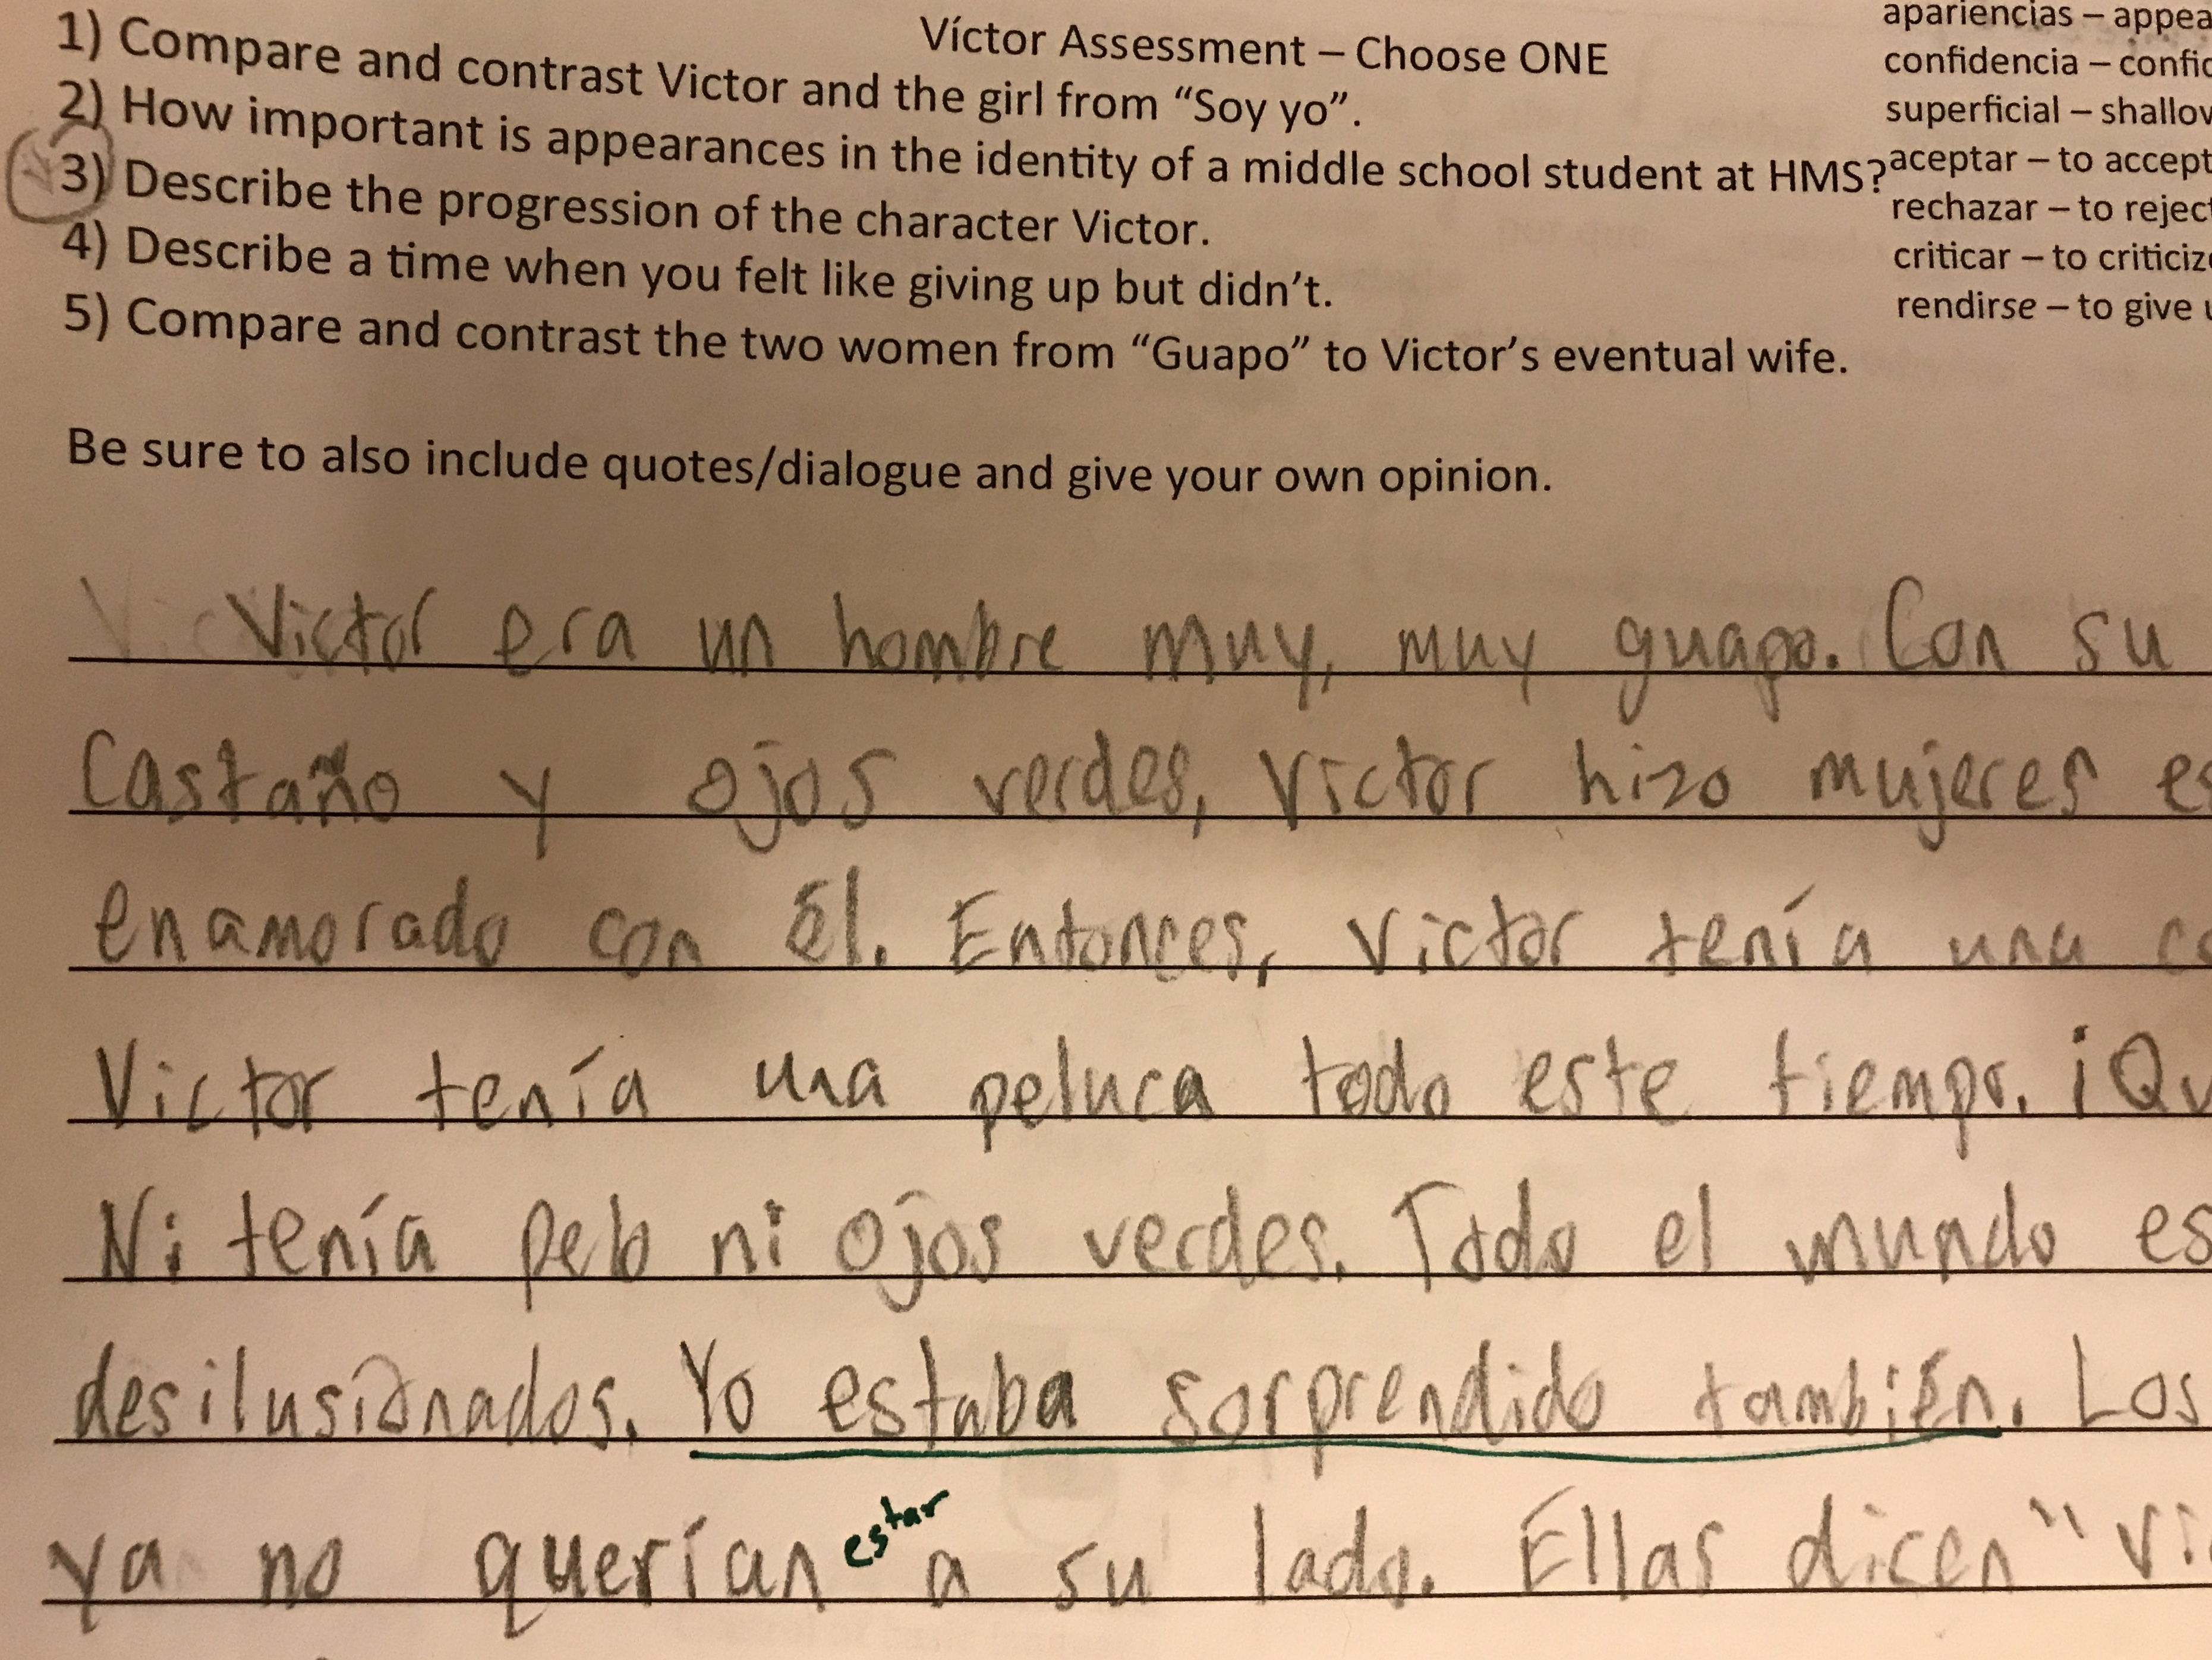 Víctor Assessment – Choose ONE
1) Compare and contrast Victor and the girl from “Soy yo”.
2) How important is appearances in the identity of a middle school student at HMS?
3) Describe the progression of the character Victor.
4) Describe a time when you felt like giving up but didn’t.
5) Compare and contrast the two women from “Guapo” to Victor’s eventual wife.
apariencias – appea
confidencia – confid
superficial – shallow
aceptar – to accept
rechazar – to reject
criticar – to criticize
rendirse – to give u
Be sure to also include quotes/dialogue and give your own opinion.
Victor era un hombre muy, muy guapo. Con su
Castaño y ojos verdes, Victor hizo mujeres es
enamorado con Él. Entonces, Victor tenía una
Victor tenía una peluca todo este tiempo. ¡Qu
Ni tenía pelo ni ojos verdes. Todo el mundo es
desilusionados. Yo estaba sorprendido también. Los
estar
ya no querían a su lado. Ellas dicen "Vi